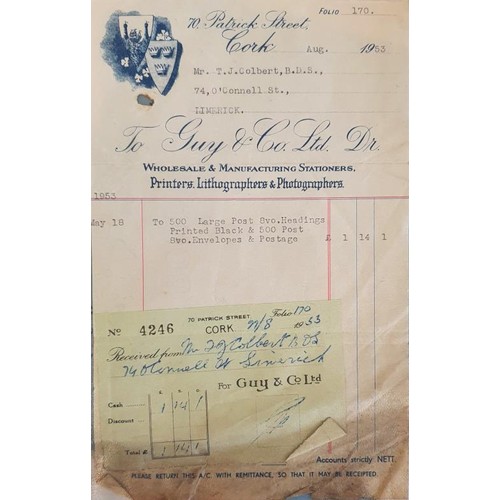 FOLIO 170.
70, Patrick Street,
Cork Aug. 1953
Mr. T.J.Colbert, B.D.S.,
74, O'Connell St.,
LIMERICK.
To Guy & Co. Ltd. Dr.
WHOLESALE & MANUFACTURING STATIONERS,
Printers, Lithographers & Photographers.
1953
May 18 To 500 Large Post 8vo. Headings
Printed Black & 500 Post
8vo. Envelopes & Postage £ 1 14 1
70 PATRICK STREET Folio 170
No 4246 CORK 1953
Received from Mr T J Colbert B D S
74 O'Connell St Limerick
For Guy & Co Ltd
Cash 1 14 1
Discount
Total £ 1 14 1
Accounts strictly NETT.
PLEASE RETURN THIS A/C WITH REMITTANCE, SO THAT IT MAY BE RECEIPTED